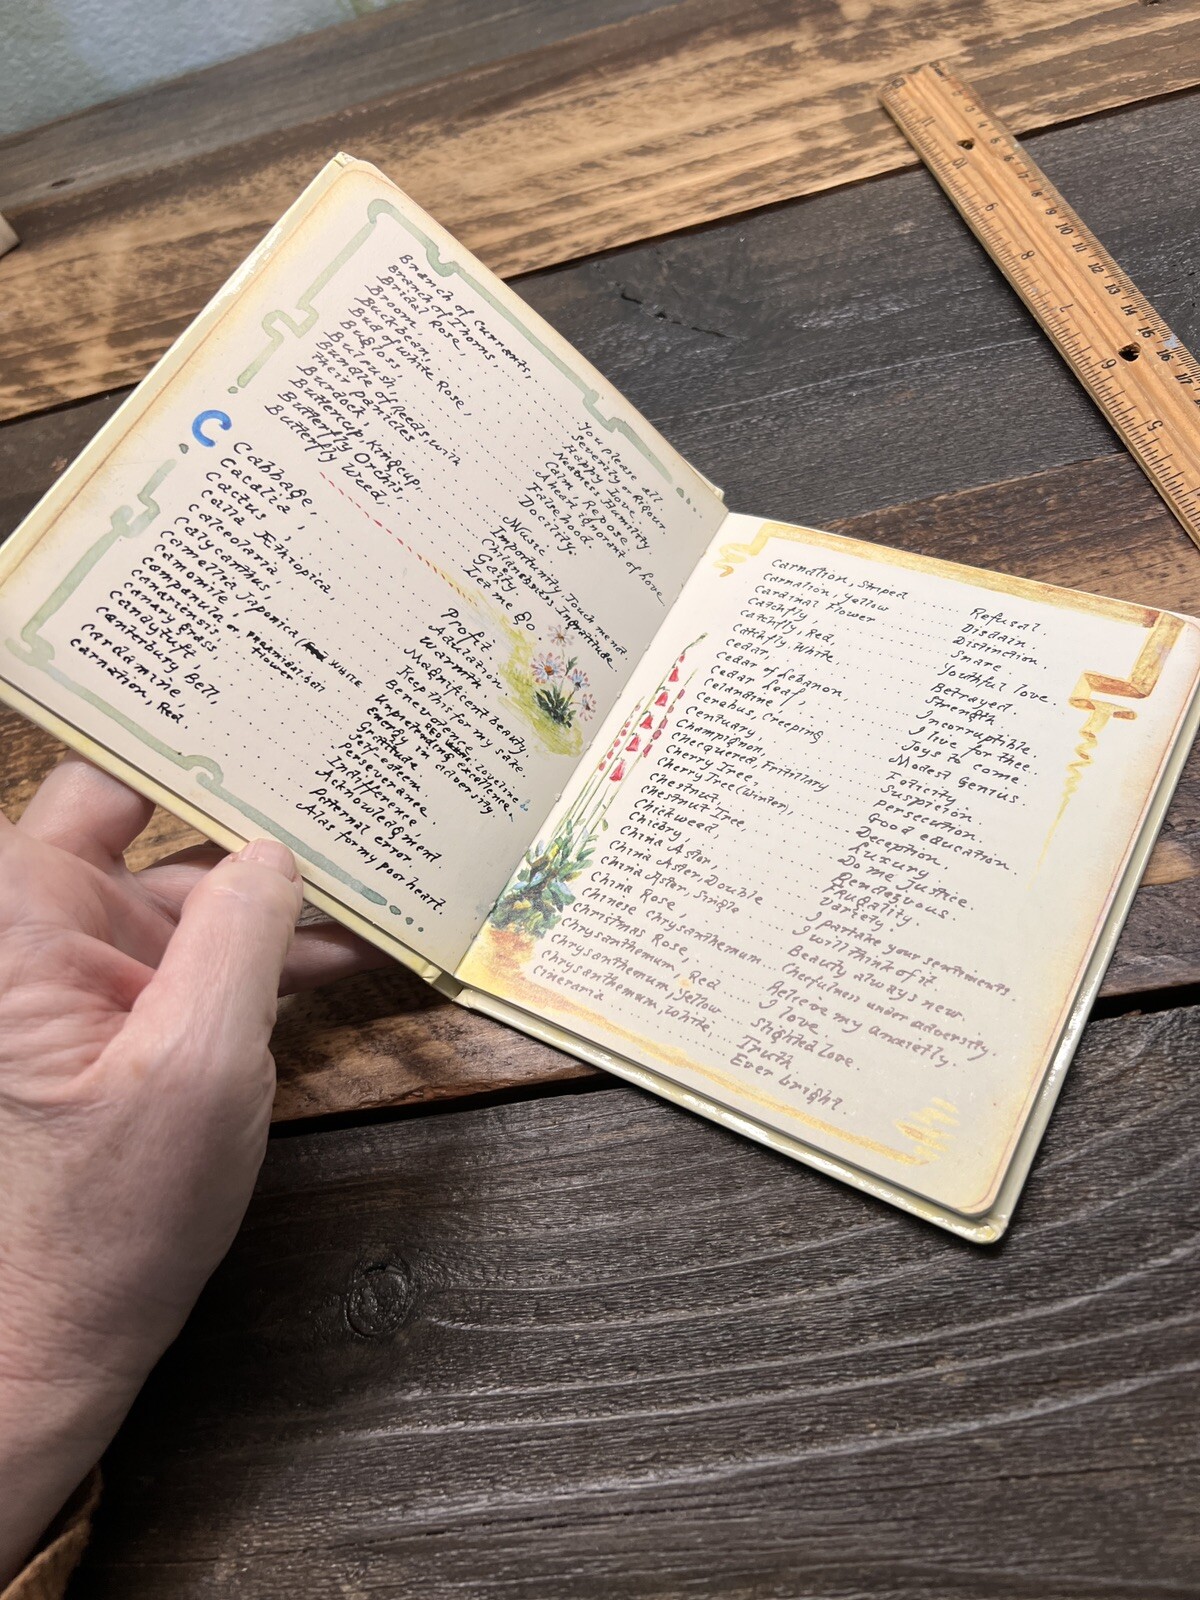 Branch of Currants, ..... You please all
Branch of Thorns, ..... Severity or Rigour
Bridal Rose, ..... Happy love
Broom, ..... Neatness Humility
Buckbean, ..... Calm, Repose
Bud of White Rose, ..... A heart ignorant of love
Bugloss, ..... Falsehood.
Bulrush, ..... Docility.
Bundle of Reeds, with
Their panicles ..... Music
Burdock, ..... Importunity, Touch me not.
Buttercup, Kingcup, ..... Childishness Ingratitude
Butterfly Orchis, ..... Gaity
Butterfly Weed, ..... Let me Go
C
Cabbage, ..... Profit
Cacalia, ..... Adulation
Cactus, ..... Warmth
Calla Æthiopica, ..... Magnificent beauty
Calceolaria, ..... Keep this for my sake
Calycanthus, ..... Benevolence
Camellia Japonica (White Unpretending excellence.
Camomile, ..... Energy in adversity.
Campanula or Pyramidal bell flower ..... Gratitude
Canariensis, ..... Self-esteem
Canary Grass, ..... Perseverance.
Candytuft, ..... Indifference,
Canterbury Bell, ..... Acknowledgment
Cardamine, ..... Paternal error.
Carnation, Red. ..... Alas for my poor heart.
Carnation, Striped ..... Refusal
Carnation, Yellow ..... Disdain
Cardinal Flower ..... Distinction
Catchfly, ..... Snare
Catchfly, Red, ..... Youthful love.
Catchfly, White ..... Betrayed.
Cedar, ..... Strength
Cedar of Lebanon ..... Incorruptible.
Cedar Leaf, ..... I live for thee.
Celandine ..... Joys to come
Cerehus, Creeping ..... Modest Genius
Centuary, ..... Felicity.
Champignon, ..... Suspicion.
Chequered, Fritillary ..... Persecution.
Cherry Tree, ..... Good education
Cherry Tree (Winter), ..... Deception
Chestnut, ..... Do me Justice.
Chestnut Tree, ..... Luxury.
Chickweed, ..... Rendezvous.
Chicory, ..... Frugality.
China Aster, ..... Variety.
China Aster, Double ..... I partake your sentiments.
China Aster, Single ..... I will think of it.
China Rose, ..... Beauty always new.
Chinese Chrysanthemum ... Cheefulness under adversity.
Christmas Rose, ..... Relieve my anxiety.
Chrysanthemum, Red ..... I love
Chrysanthemum, Yellow ..... Slighted love.
Chrysanthemum, White, ..... Truth
Cineraria ..... Ever bright.